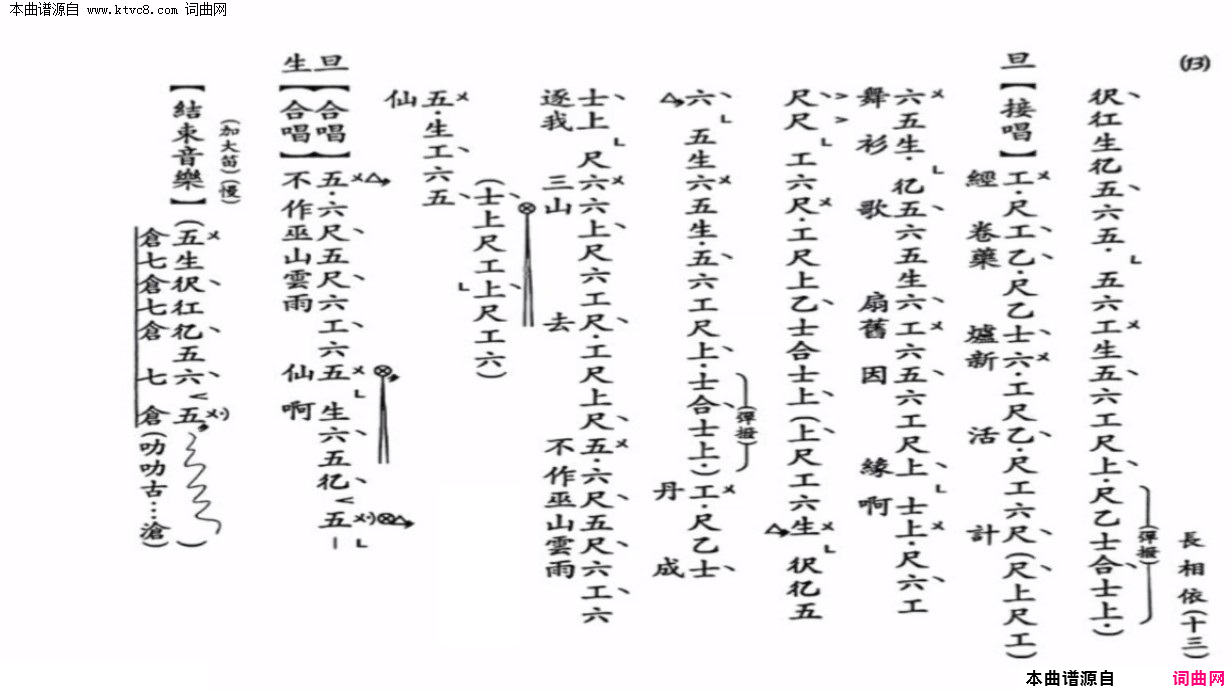 本曲谱源自 www.ktvc8.com 词曲网
(13) 長相依(十三)
(彈撥)
伬仜生亿五六五·五六工生五六工尺上·尺乙士合士上·)
旦【接唱】工·尺工乙·尺乙士六·工尺乙·尺工六尺(尺上尺工)
經卷藥爐新活計
六五生·亿五六五生六工六五六工尺上士上·尺六工
舞衫歌扇舊因緣啊
尺尺工六尺·工尺上乙士合士上(上尺工六生伬亿五
六五生六五生·五六工尺上·士合士上·)工·尺乙士
丹成
(彈撥)
士上尺六六上尺六工尺·工尺上尺五·六尺五尺六工六
逐我三山去不作巫山雲雨
(士上尺工上尺工六)
五·生工六五
仙
旦【合唱】五·六尺五尺六工六五生六五亿五
生【合唱】不作巫山雲雨仙啊
(加大笛)(慢)
【結束音樂】(五生伬仜亿五六五)
倉七倉七倉七倉(叻叻古…滄)
本曲谱源自 词曲网